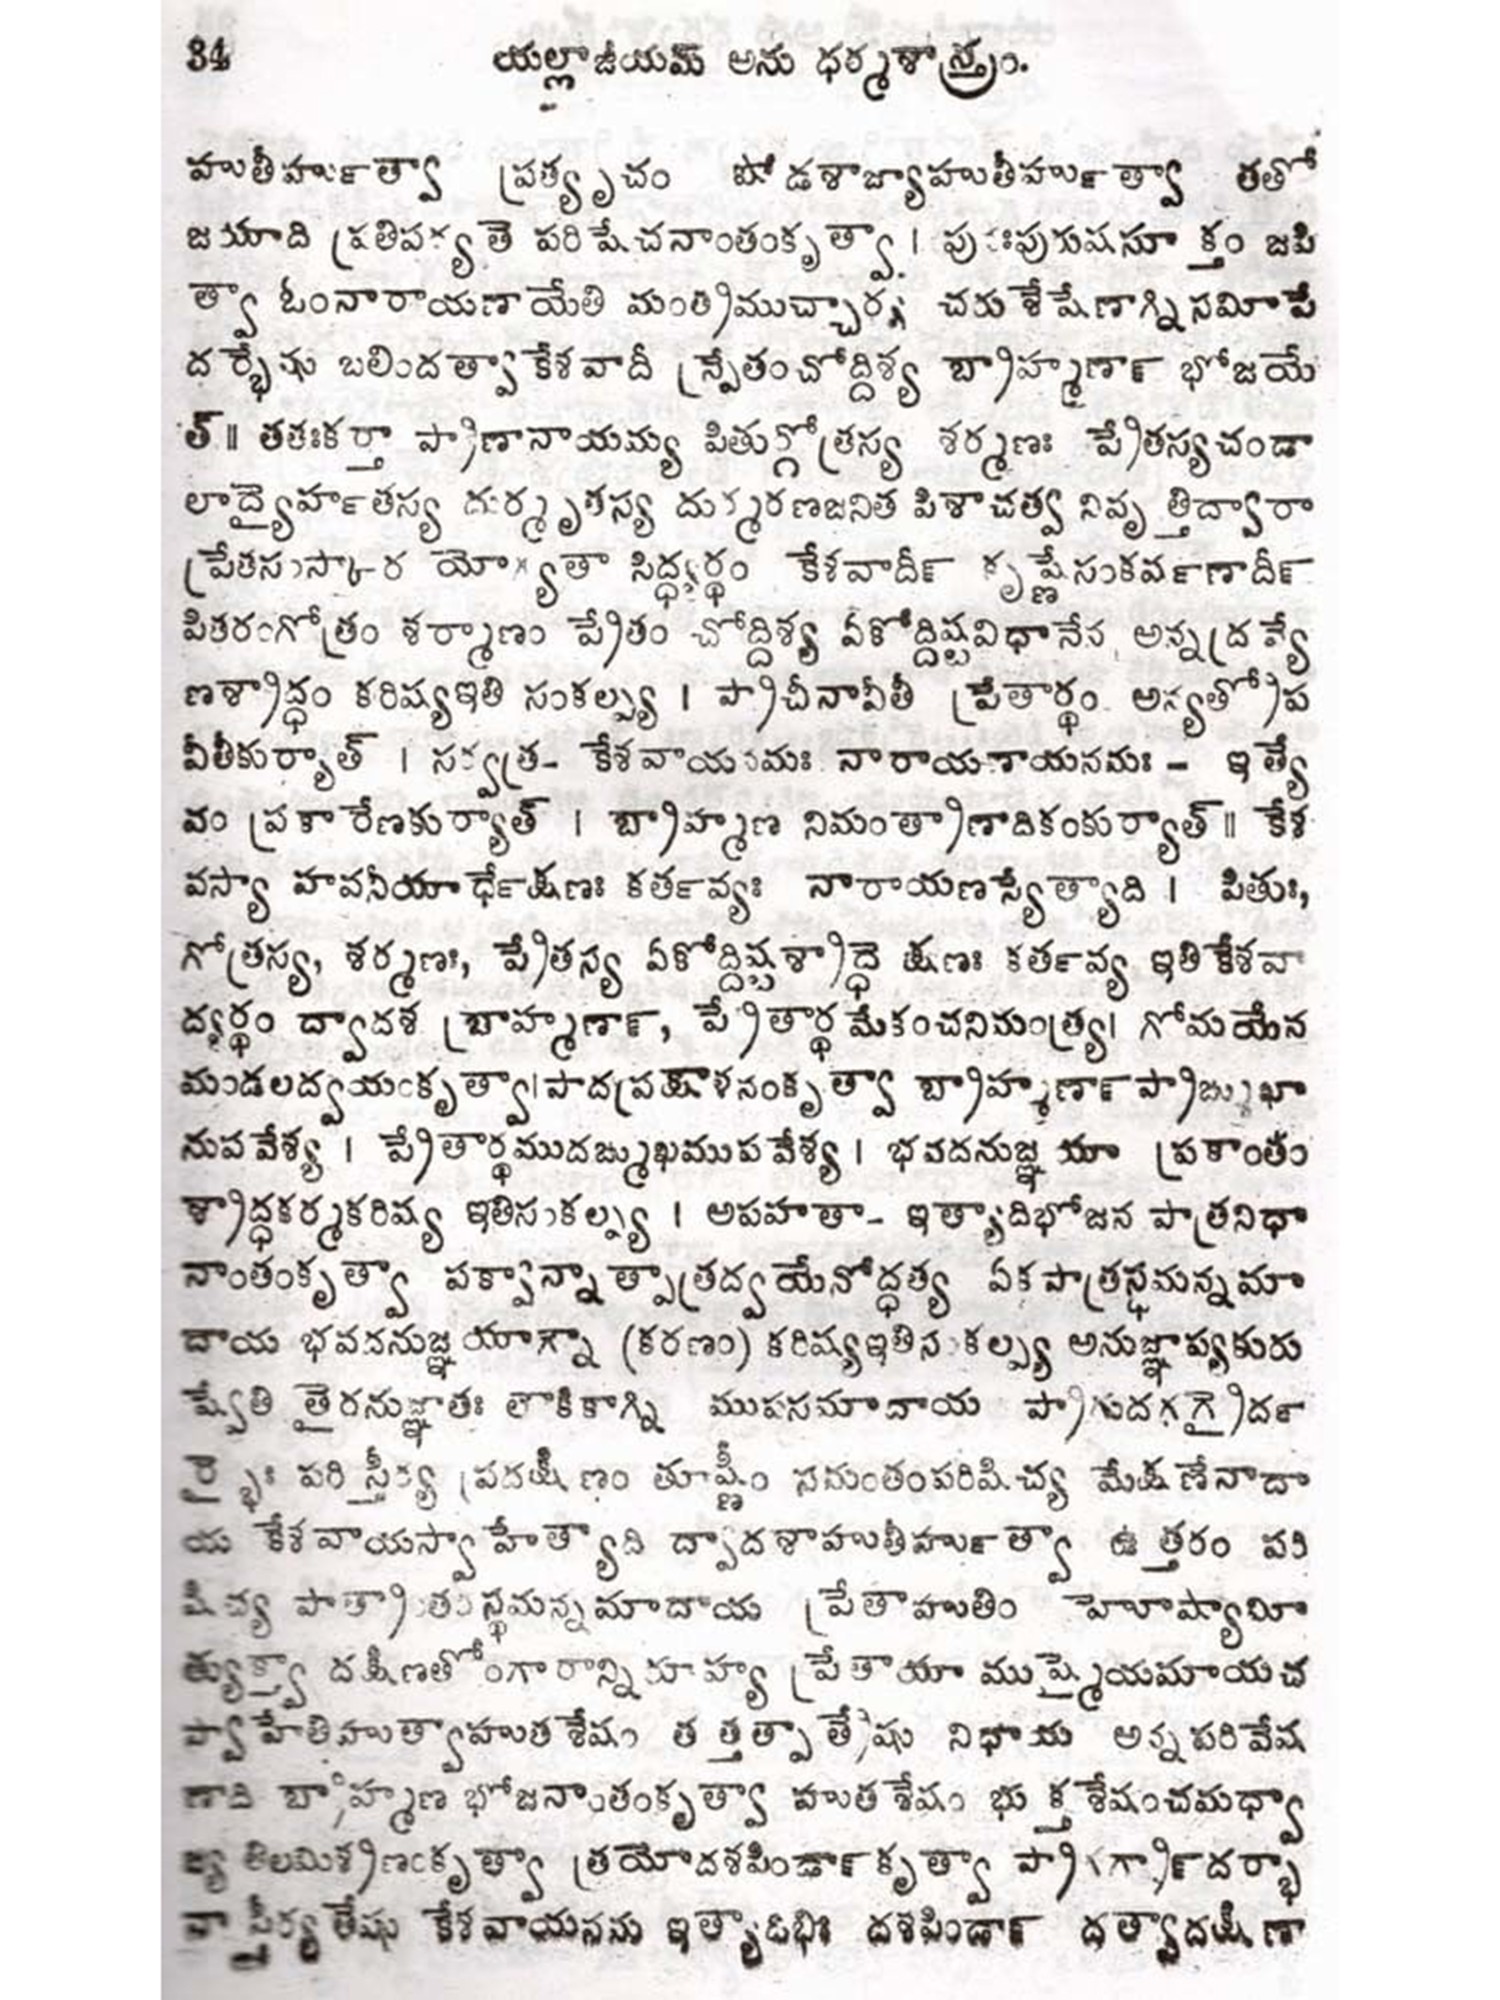 34 యల్లాజీయమ్ అను ధర్మశాస్త్రం.
హుతీర్హుత్వా ప్రత్యృచం షోడశాజ్యాహుతీర్హుత్వా తతో
జయాది ప్రతిపద్యతే పరిషేచనాంతంకృత్వా। పునఃపురుషసూ క్తం జపి
త్వా ఓంనారాయణాయేతి మంత్రముచ్చార్య చరుశేషేణాగ్నిసమీపే
దర్భేషు బలిందత్వాకేశవాదీ న్ప్రేతంచోద్దిశ్య బ్రాహ్మణాన్ భోజయే
త్॥ తతఃకర్తా ప్రాణానాయమ్య పితుర్గోత్రస్య శర్మణః ప్రేతస్యచండా
లాద్యైర్హతస్య దుర్మృతస్య దుర్మరణజనిత పిశాచత్వ నివృ త్తిద్వారా
ప్రేతసంస్కార యోగ్యతా సిద్ధ్యర్థం కేశవాదీన్ కృష్ణేసంకర్షణాదీన్
పితరంగోత్రం శర్మాణం ప్రేతం చోద్దిశ్య ఏకోద్దిష్టవిధానేన అన్నద్రవ్యే
ణశ్రాద్ధం కరిష్యఇతి సంకల్ప్య । ప్రాచీనావీతీ ప్రేతార్థం అన్యత్రోప
వీతీకుర్యాత్ । సర్వత్ర- కేశవాయనమః నారాయణాయనమః - ఇత్యే
వం ప్రకారేణకుర్యాత్ । బ్రాహ్మణ నిమంత్రాణాదికంకుర్యాత్॥ కేశ
వస్యా హవనీయార్ధేక్షణః కర్తవ్యః నారాయణస్యేత్యాది । పితుః,
గోత్రస్య, శర్మణః, ప్రేతస్య ఏకోద్దిష్టశ్రాద్ధె క్షణః కర్తవ్య ఇతికేశవా
ద్యర్థం ద్వాదశ బ్రాహ్మణాన్, ప్రేతార్థ మేకంచనిమంత్ర్య। గోమయేన
మండలద్వయంకృత్వా।పాదప్రక్షాళనంకృత్వా బ్రాహ్మణాన్ప్రాఙ్ముఖా
నుపవేశ్య । ప్రేతార్థముదఙ్ముఖముపవేశ్య। భవదనుజ్ఞయా ప్రకాంతం
శ్రాద్ధకర్మకరిష్య ఇతిసంకల్ప్య । అపహతా- ఇత్యాదిభోజన పాత్రనిధా
నాంతంకృత్వా పక్వాన్నాత్పాత్రద్వయేనోద్ధత్య ఏకపాత్రస్థమన్నమా
దాయ భవదనుజ్ఞయాగ్నా (కరణం) కరిష్యఇతిసంకల్ప్య అనుజ్ఞాప్యకురు
ష్వేతి తైరనుజ్ఞాతః లౌకికాగ్ని ముపసమాదాయ ప్రాగుదగగ్రైర్ద
ర్భైః పరిస్తీర్య ప్రదక్షిణం తూష్ణీం సమంతంపరిషిచ్య మేక్షణేనాదా
య కేశవాయస్వాహేత్యాది ద్వాదశాహుతీర్హుత్వా ఉత్తరం పరి
షిచ్య పాత్రాంతరస్థమన్నమాదాయ ప్రేతాహుతిం హోష్యామీ
త్యుక్త్వా దక్షిణతోంగారాన్నిరూహ్య ప్రేతాయా ముష్మైయమాయచ
స్వాహేతిహుత్వాహుతశేషం తత్తత్పాత్రేషు నిధాయ అన్నపరివేష
ణాది బ్రాహ్మణ భోజనాంతంకృత్వా హుతశేషం భుక్తశేషంచమధ్వా
జ్య తిలమిశ్రిణంకృత్వా త్రయోదశపిండాన్కృత్వా ప్రాగగ్రాన్దర్భా
నాస్తీర్య తేషు కేశవాయనమ ఇత్యాదిభిః దశపిండాన్ దత్వాదక్షిణా